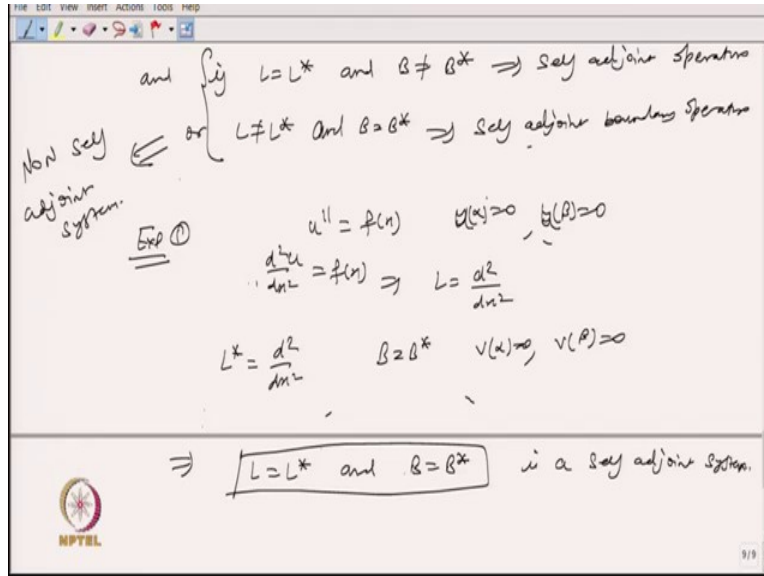 File Edit View Insert Actions Tools Help
and if L=L* and B≠B* ⇒ Self adjoint operator
or L≠L* and B=B* ⇒ Self adjoint boundary operator
NON Self adjoint system.
Exp ①
u'' = f(x) u(α)=0, u(β)=0
d²u/dx² = f(x) ⇒ L = d²/dx²
L* = d²/dx² B=B* v(α)=0, v(β)=0
⇒ L=L* and B=B* is a Self adjoint system.
NPTEL
9/9